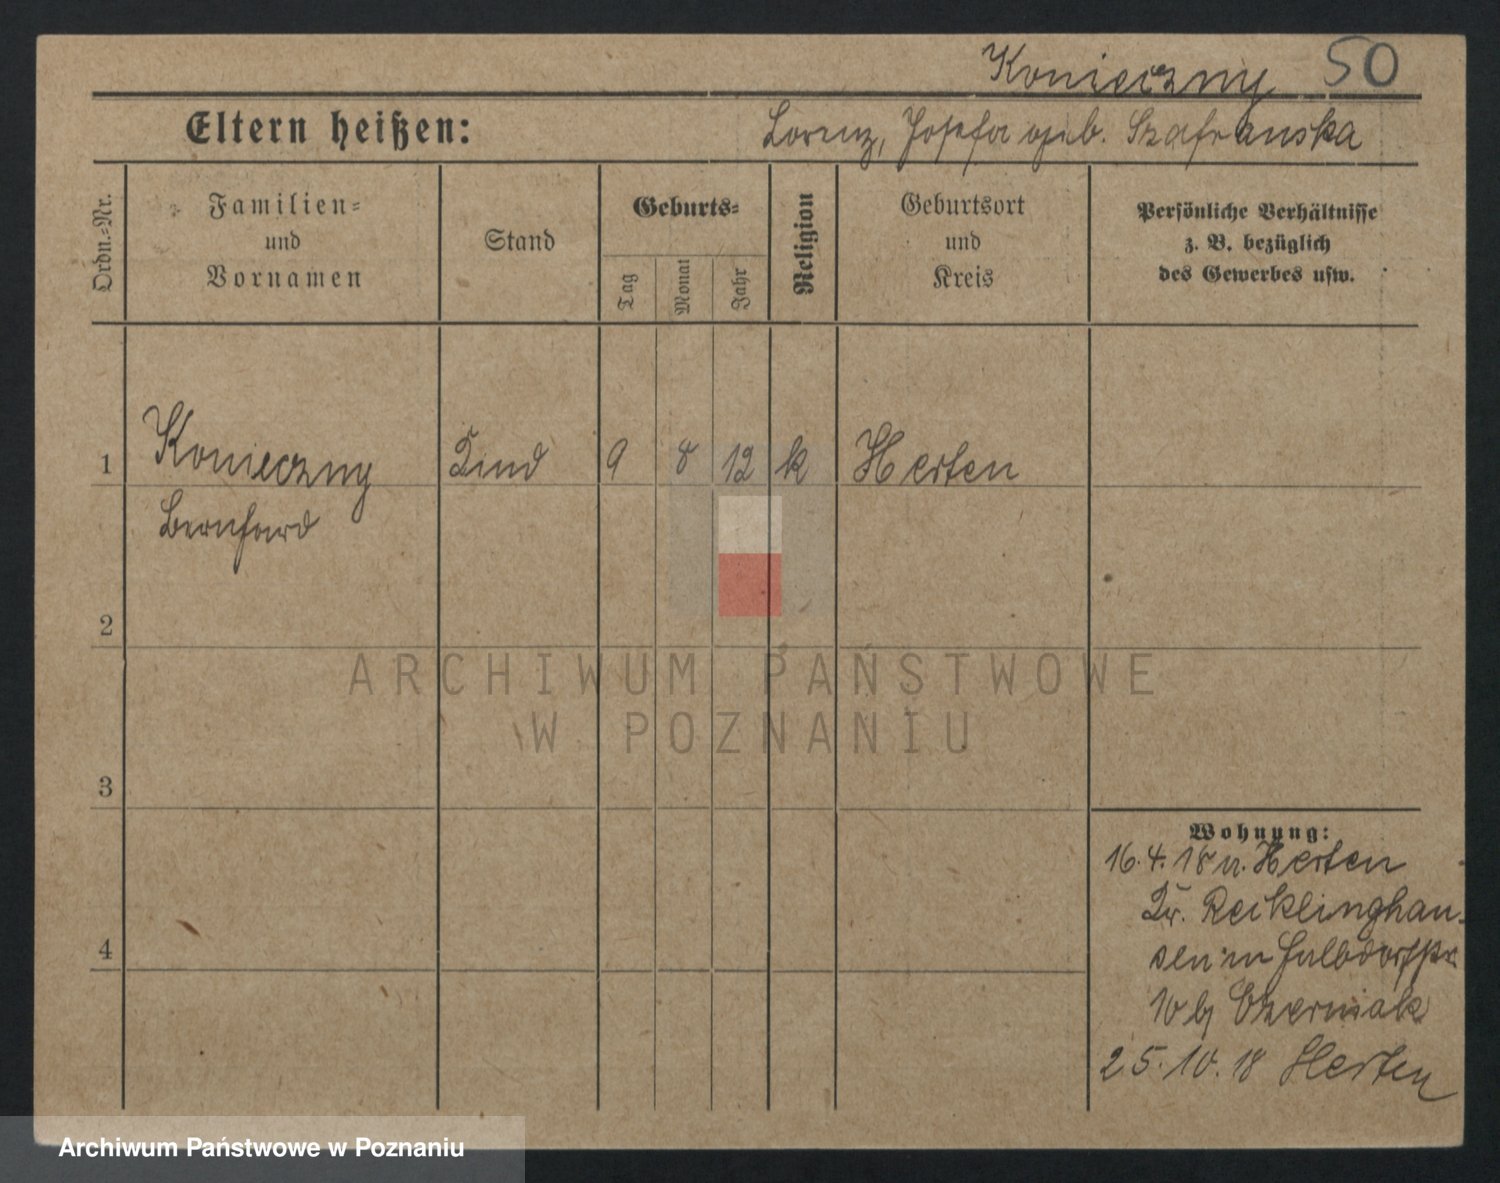 Konieczny 50
Eltern heißen: Lorenz, Josefa geb. Szafranska
Ordn.-Nr.
Familien-
und
Vornamen
Stand
Geburts-
Tag
Monat
Jahr
Religion
Geburtsort
und
Kreis
Persönliche Verhältnisse
z. B. bezüglich
des Gewerbes usw.
1 Konieczny Kind 9 8 12 k Herten
Bernhard
2
3
4
Wohnung:
16. 4. 18 v. Herten
Kr. Recklinghau-
sen in Halbdorfstr.
10 bj Czerniak
25. 10. 18 Herten
ARCHIWUM PAŃSTWOWE
W POZNANIU
Archiwum Państwowe w Poznaniu